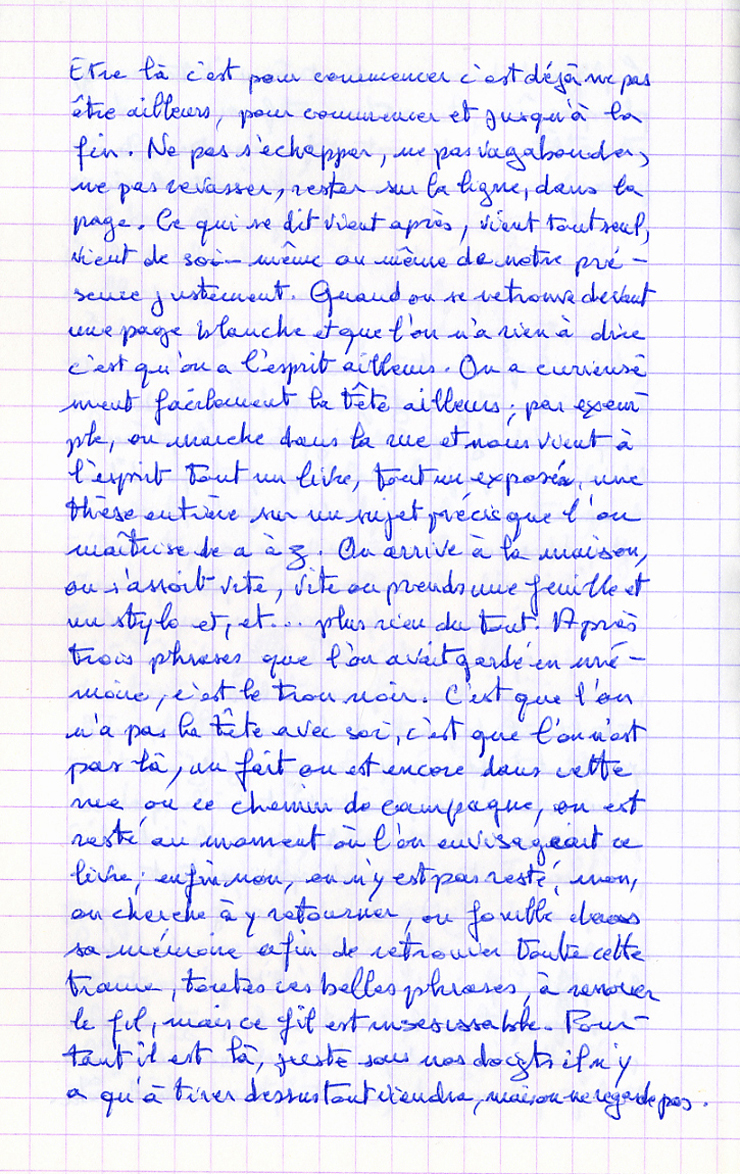 Etre là c'est pour commencer c'est déjà ne pas
être ailleurs, pour commencer et jusqu'à la
fin. Ne pas s'échapper, ne pas vagabonder,
ne pas revasser, rester sur la ligne, dans la
page. Ce qui se dit vient après, vient tout seul,
vient de soi-même ou même de notre pré-
sence justement. Quand on se retrouve devant
une page blanche et que l'on n'a rien à dire
c'est qu'on a l'esprit ailleurs. On a curieuse
ment facilement la tête ailleurs; par exem-
ple, on marche dans la rue et nous vient à
l'esprit tout un livre, tout un exposé, une
thèse entière sur un sujet précis que l'on
maîtrise de a à z. On arrive à la maison,
on s'assoit vite, vite on prends une feuille et
un stylo et, et... plus rien du tout. Après
trois phrases que l'on avait gardé en mé-
moire, c'est le trou noir. C'est que l'on
n'a pas la tête avec soi, c'est que l'on n'est
pas là, en fait on est encore dans cette
rue ou ce chemin de campagne, on est
resté au moment où l'on envisageait ce
livre; enfin non, on n'y est pas resté, non,
on cherche à y retourner, on fouille dans
sa mémoire afin de retrouver toute cette
trame, toutes ces belles phrases, à renouer
le fil, mais ce fil est insesissable. Pour-
tant il est là, juste sous nos doigts il n'y
a qu'à tirer dessus tout viendra, mais on ne regarde pas.